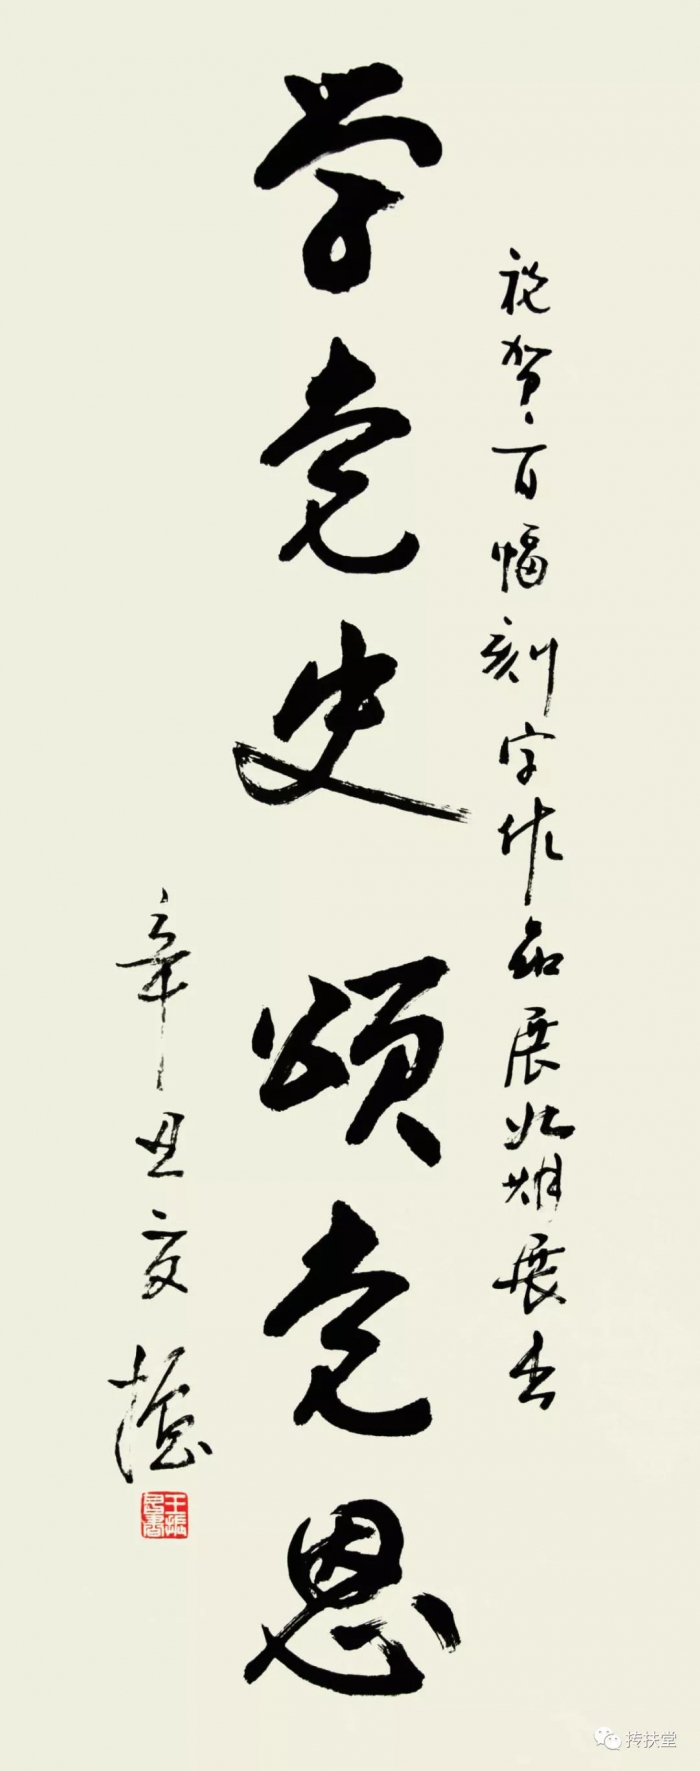 祝贺百幅刻字作品展北湖展出
学党史颂党恩
辛丑夏
抟扶堂